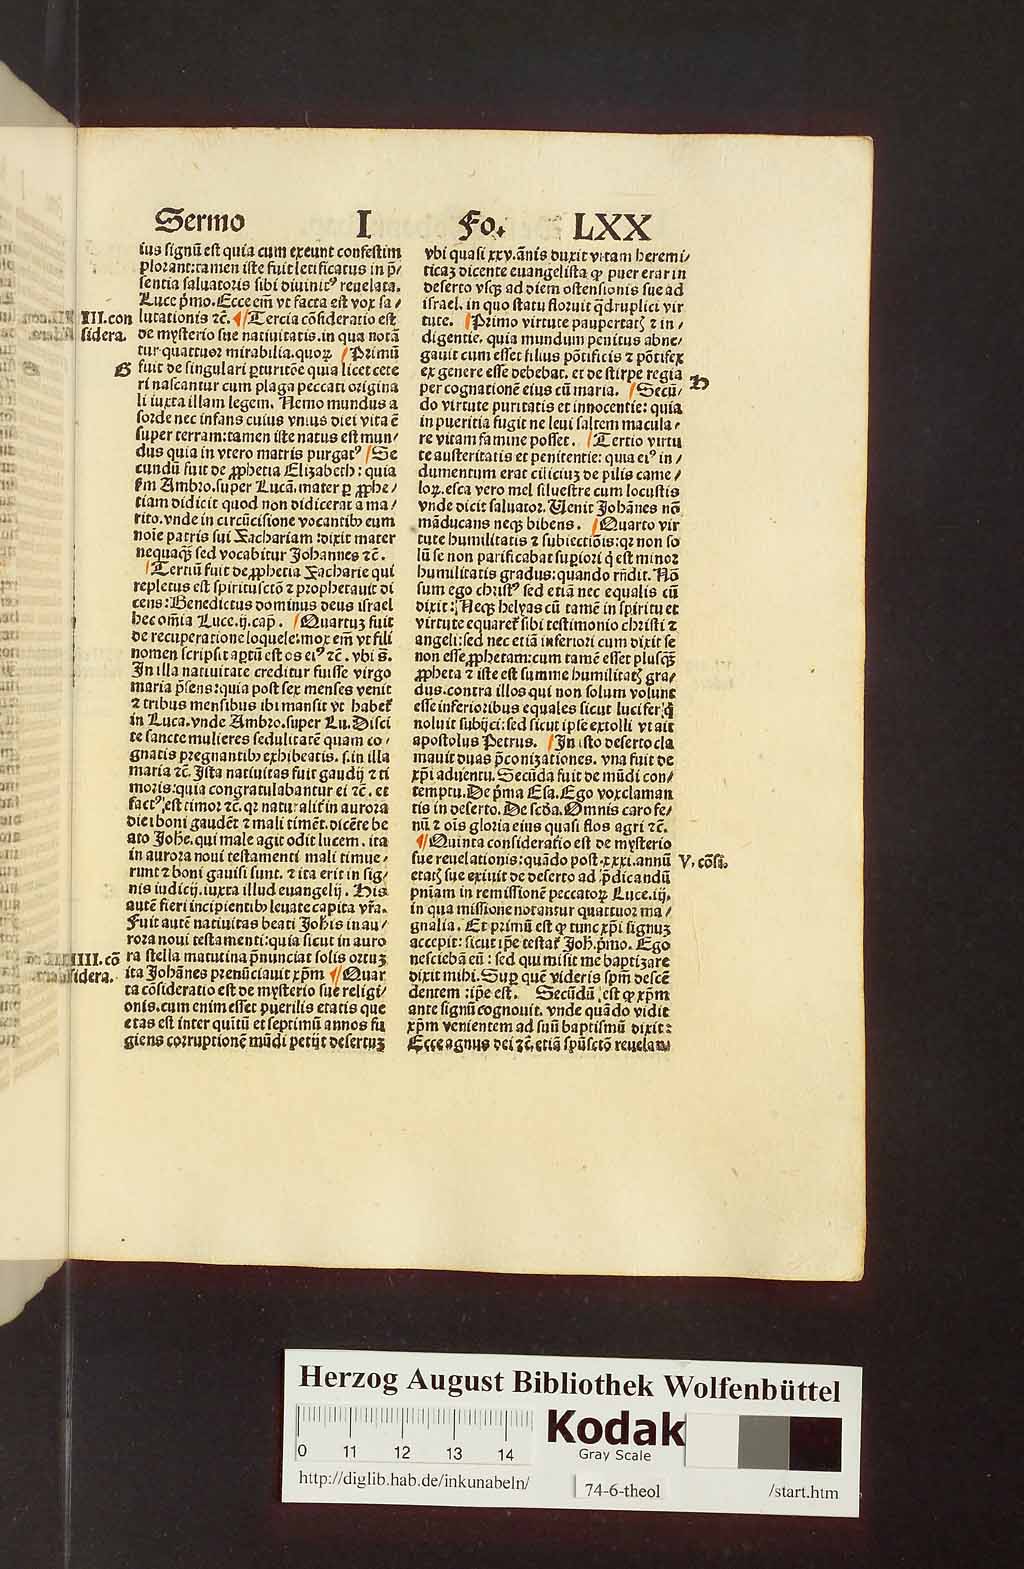 Sermo I Fo. LXX
ius signū est quia cum exeunt confestim
plorant: tamen iste fuit letificatus in p̄/
sentia saluatoris sibi diuinitꝰ reuelata.
Luce p̄mo. Ecce em̄ vt facta est vox sa/
lutationis ⁊c̄. ¶ Tercia cōsideratio est
III. con
sidera.
de mysterio sue natiuitatis. in qua notā
tur quattuor mirabilia. quoꝝ / Primū
G
fuit de singulari ꝑturitōe quia licet cete
ri nascantur cum plaga peccati origina
li iuxta illam legem. Nemo mundus a
sorde nec infans cuius vnius diei vita ē
super terram: tamen iste natus est mun/
dus quia in vtero matris purgatꝰ / Se
cundū fuit de ꝓphetia Elizabeth: quia
s̄m Ambro. super Lucā. mater ꝑ ꝓphe/
tiam didicit quod non didicerat a ma/
rito. vnde in circūcisione vocantibꝰ eum
noīe patris sui Zachariam: dixit mater
nequaqꝫ sed vocabitur Johannes ⁊c̄.
/ Tertiū fuit de ꝓphetia Zacharie qui
repletus est spiritusctō ⁊ prophetauit di
cens: Benedictus dominus deus israel
hec om̄ia Luce. ij. cap̄. / Quartuꝫ fuit
de recuperatione loquele: mox em̄ vt fili
nomen scripsit aꝑtū est os eiꝰ ⁊c̄. vbi s̄.
In illa natiuitate creditur fuisse virgo
maria p̄sens: quia post sex menses venit
⁊ tribus mensibus ibi mansit vt habet̄
in Luca. vnde Ambro. super Lu. Disci
te sancte mulieres sedulitatē quam co/
gnatis pregnantibꝰ exhibeatis. s. in illa
maria ⁊c̄. Ista natiuitas fuit gaudij ⁊ ti
moris: quia congratulabantur ei ⁊c̄. et
factꝰ est timor ⁊c̄. qr naturalit̄ in aurora
diei boni gaudēt ⁊ mali timēt. dicēte be
ato Johe. qui male agit odit lucem. ita
in aurora noui testamenti mali timue/
runt ⁊ boni gauisi sunt. ⁊ ita erit in sig/
nis iudicij. iuxta illud euangelij. His
autē fieri incipientibꝰ leuate capita vr̄a.
Fuit autē natiuitas beati Joh̄is in au/
rora noui testamenti: quia sicut in auro
ra stella matutina p̄nunciat solis ortuꝫ
IIII. cō
sidera.
ita Johānes prenūciauit xp̄m ¶ Quar
ta cōsideratio est de mysterio sue religi/
onis. cum enim esset puerilis etatis que
etas est inter quītū et septimū annos fu
giens corruptionē mūdi petijt desertuꝫ
vbi quasi xxv. ānis duxit vitam heremi/
ticaꝫ dicente euangelista ꝙ puer erat in
deserto vsqꝫ ad diem ostensionis sue ad
israel. in quo statu floruit q̄druplici vir
tute. / Primo virtute paupertatꝭ ⁊ in/
digentie. quia mundum penitus abne/
gauit cum esset filius pōtificis ⁊ pōtifex
ex genere esse debebat. et de stirpe regia
H
per cognationē eius cū maria. / Secū/
do virtute puritatis et innocentie: quia
in pueritia fugit ne leui saltem macula/
re vitam famine posset. / Tertio virtu
te austeritatis et penitentie: quia eiꝰ in/
dumentum erat ciliciuꝫ de pilis came/
loꝝ. esca vero mel siluestre cum locustis
vnde dicit saluator. Uenit Johānes nō
māducans neqꝫ bibens. / Quarto vir
tute humilitatis ⁊ subiectiōis: qꝛ non so
lū se non parificabat suꝑiori q̄ est minor
humilitatis gradus: quando rn̄dit. Nō
sum ego christꝰ sed etiā nec equalis cū
dixit: Neqꝫ helyas cū tamē in spiritu et
virtute equaret̄ sibi testimonio christi ⁊
angeli: sed nec etiā inferiori cum dixit se
non esse ꝓphetam: cum tamē esset plusqꝫ
ꝓpheta ⁊ iste est summe humilitatꝭ gra/
dus. contra illos qui non solum volunt
esse inferioribus equales sicut lucifer q̄
noluit subijci: sed sicut ipse extolli vt ait
apostolus Petrus. / In isto deserto cla
mauit duas p̄conizationes. vna fuit de
xp̄i aduentu. Secūda fuit de mūdi con/
temptu. De p̄ma Esa. Ego vox claman
tis in deserto. De scd̄a. Omnis caro fe/
nū ⁊ oīs gloria eius quasi flos agri ⁊c̄.
¶ Quinta consideratio est de mysterio
sue reuelationis: quādo post. xxxi. annū
V. cōsi.
etatꝭ sue exiuit de deserto ad p̄dicandū
pn̄iam in remissionē peccatoꝝ Luce. iij.
in qua missione notantur quattuor ma/
gnalia. Et primū est ꝙ tunc xp̄i signuꝫ
accepit: sicut ip̄e testat̄ Joh̄. p̄mo. Ego
nesciebā eū: sed qui misit me baptizare
dixit mihi. Suꝑ quē videris sp̄m descē
dentem: ip̄e est. Secūdū est ꝙ xp̄m
ante signū cognouit. vnde quādo vidit
xp̄m venientem ad suū baptismū dixit:
Ecce agnus dei ⁊c̄. etiā sp̄usctō reuelan/
Herzog August Bibliothek Wolfenbüttel
0 11 12 13 14
Kodak
Gray Scale
http://diglib.hab.de/inkunabeln/ 74-6-theol /start.htm